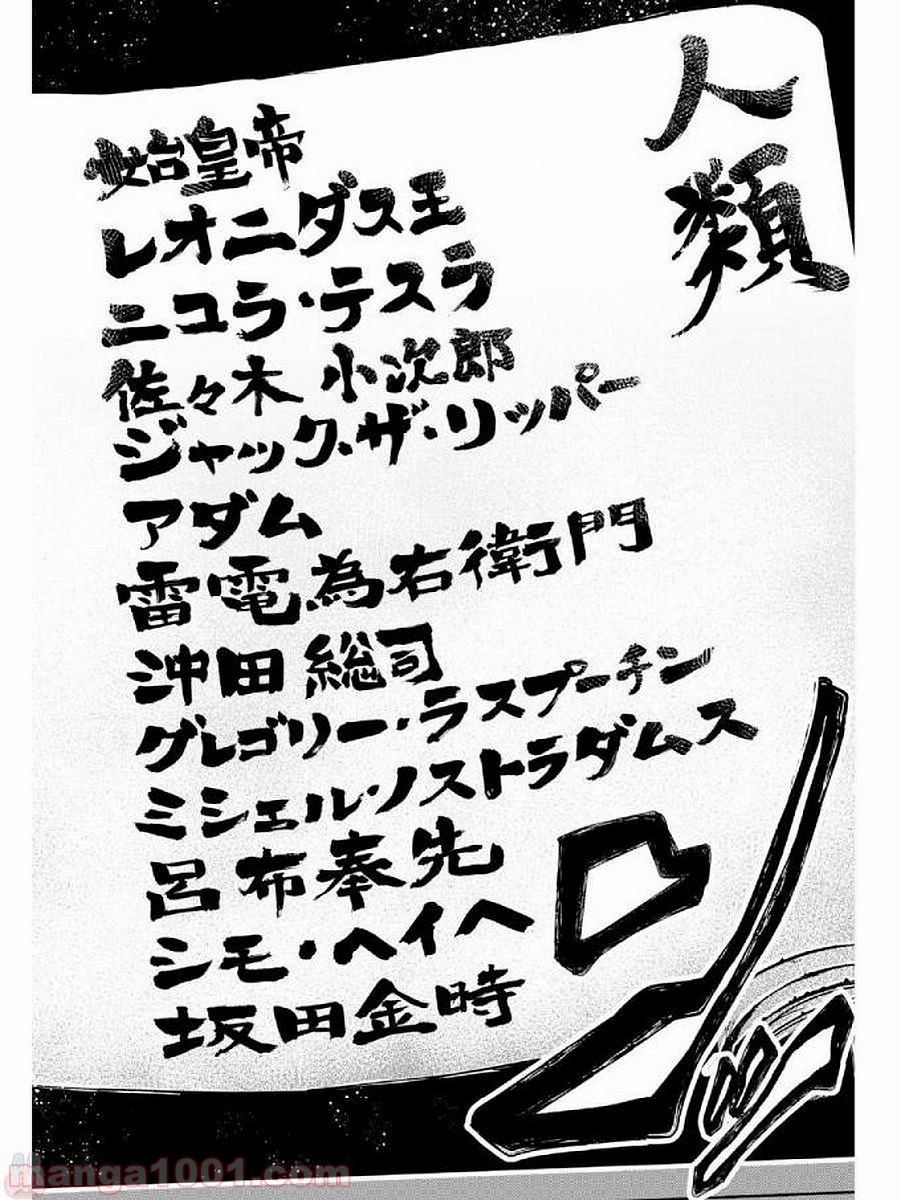 人類
始皇帝
レオニダス王
ニコラ・テスラ
佐々木 小次郎
ジャック・ザ・リッパー
アダム
雷電為右衛門
沖田総司
グレゴリー・ラスプーチン
ミシェル・ノストラダムス
呂布奉先
シモ・ヘイヘ
坂田金時
ッ
manga1001.com